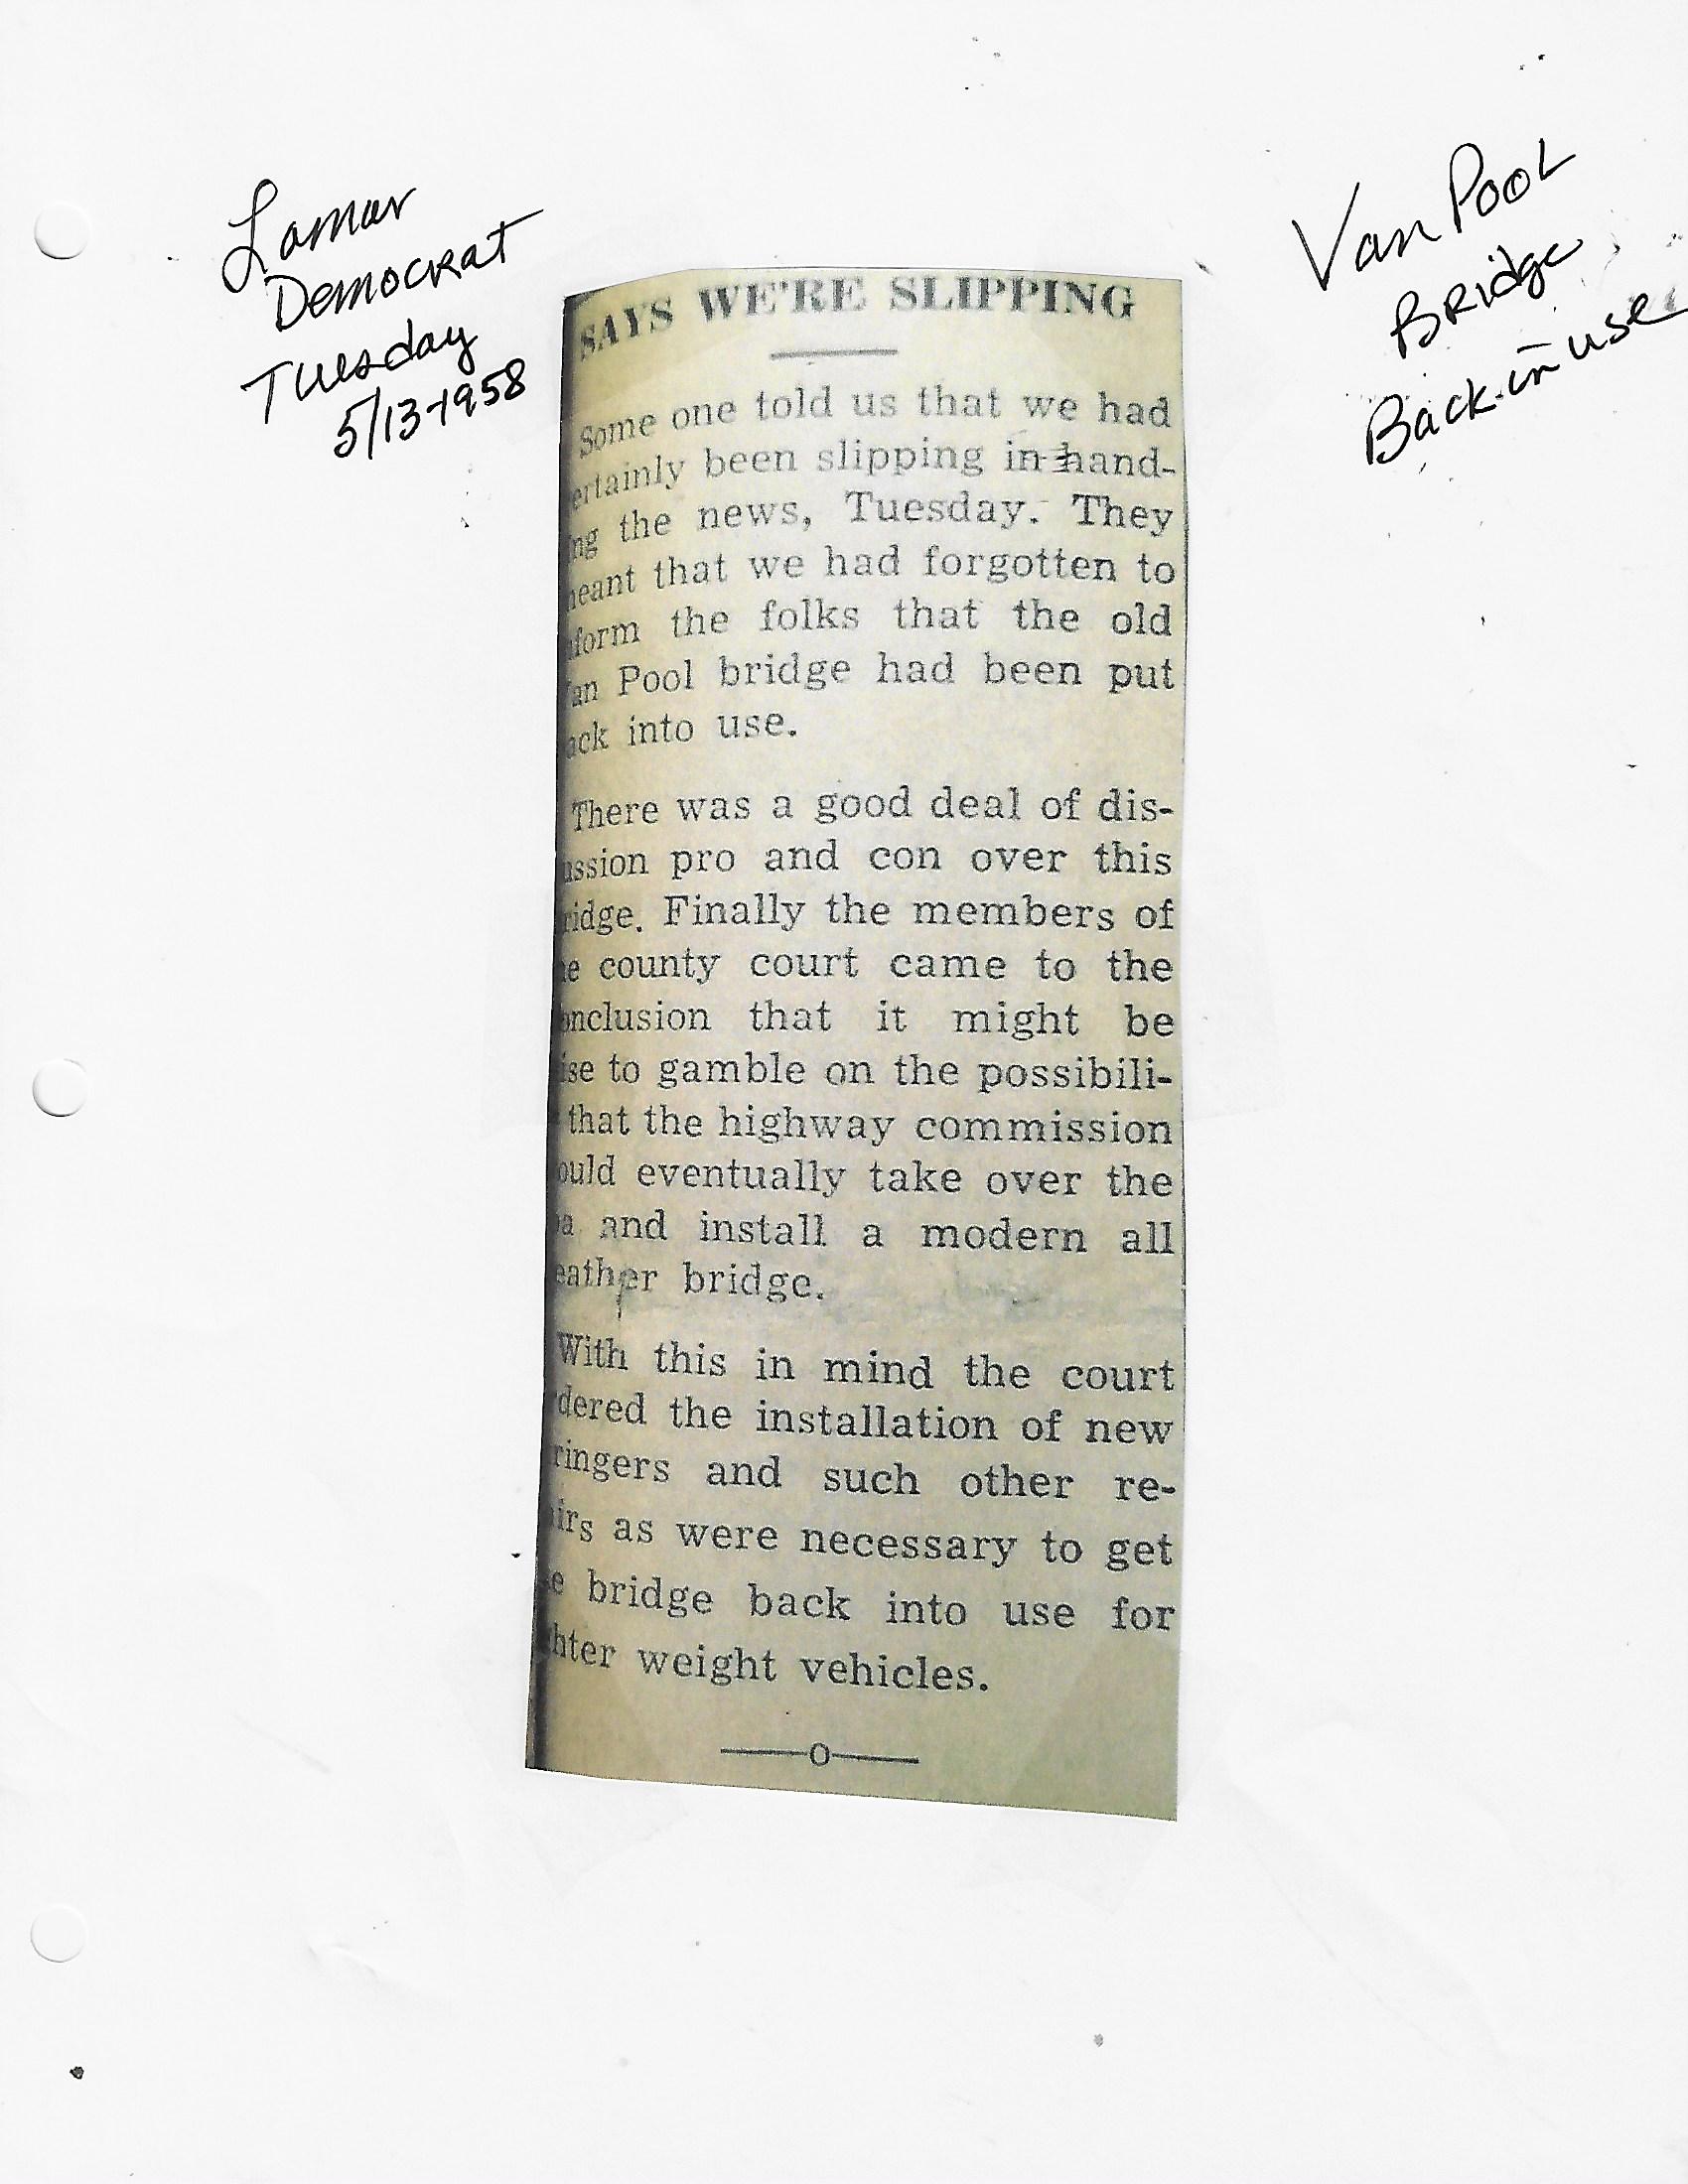 Lamar
Democrat
Tuesday
5/13-1958
Van Pool
Bridge
Back-in use
SAYS WE'RE SLIPPING
Some one told us that we had
ertainly been slipping in hand-
ng the news, Tuesday. They
eant that we had forgotten to
form the folks that the old
an Pool bridge had been put
ack into use.
There was a good deal of dis-
ussion pro and con over this
ridge. Finally the members of
e county court came to the
onclusion that it might be
ise to gamble on the possibili-
that the highway commission
ould eventually take over the
a and install a modern all
eather bridge.
With this in mind the court
dered the installation of new
ringers and such other re-
irs as were necessary to get
e bridge back into use for
hter weight vehicles.